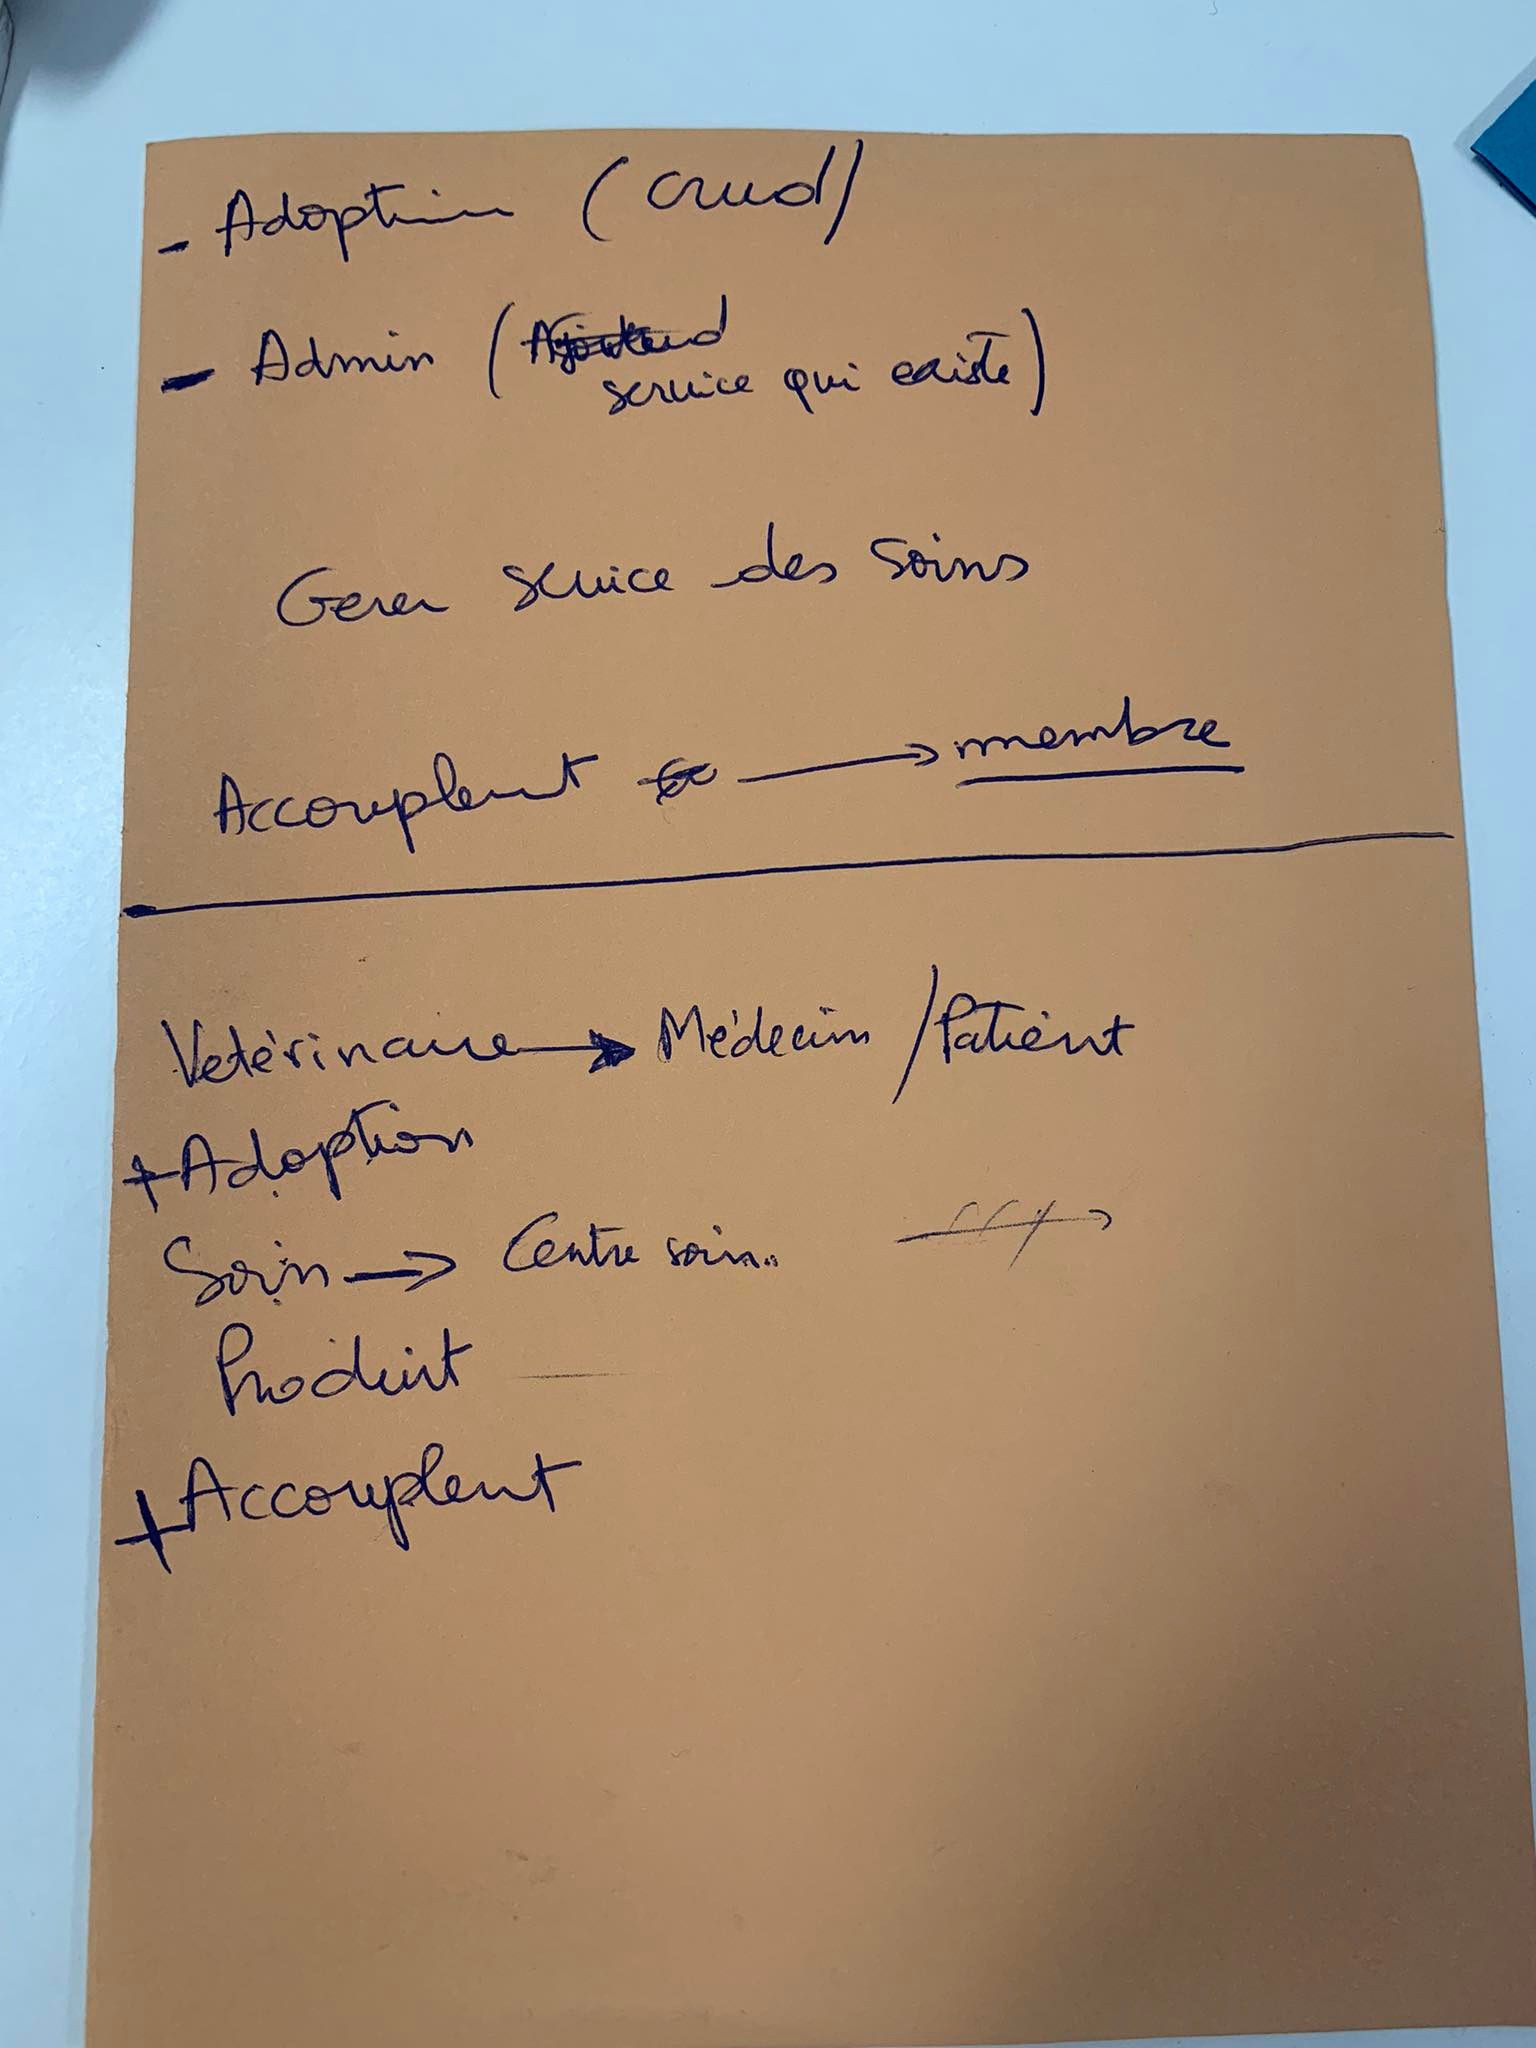 - Adoption (Crud)
- Admin (
service qui existe)
Gerer service des soins
Accouplent → membre
Vetérinaire → Médecin / Patient
+ Adoption
Soin → Centre soin..
Produit
+ Accouplent